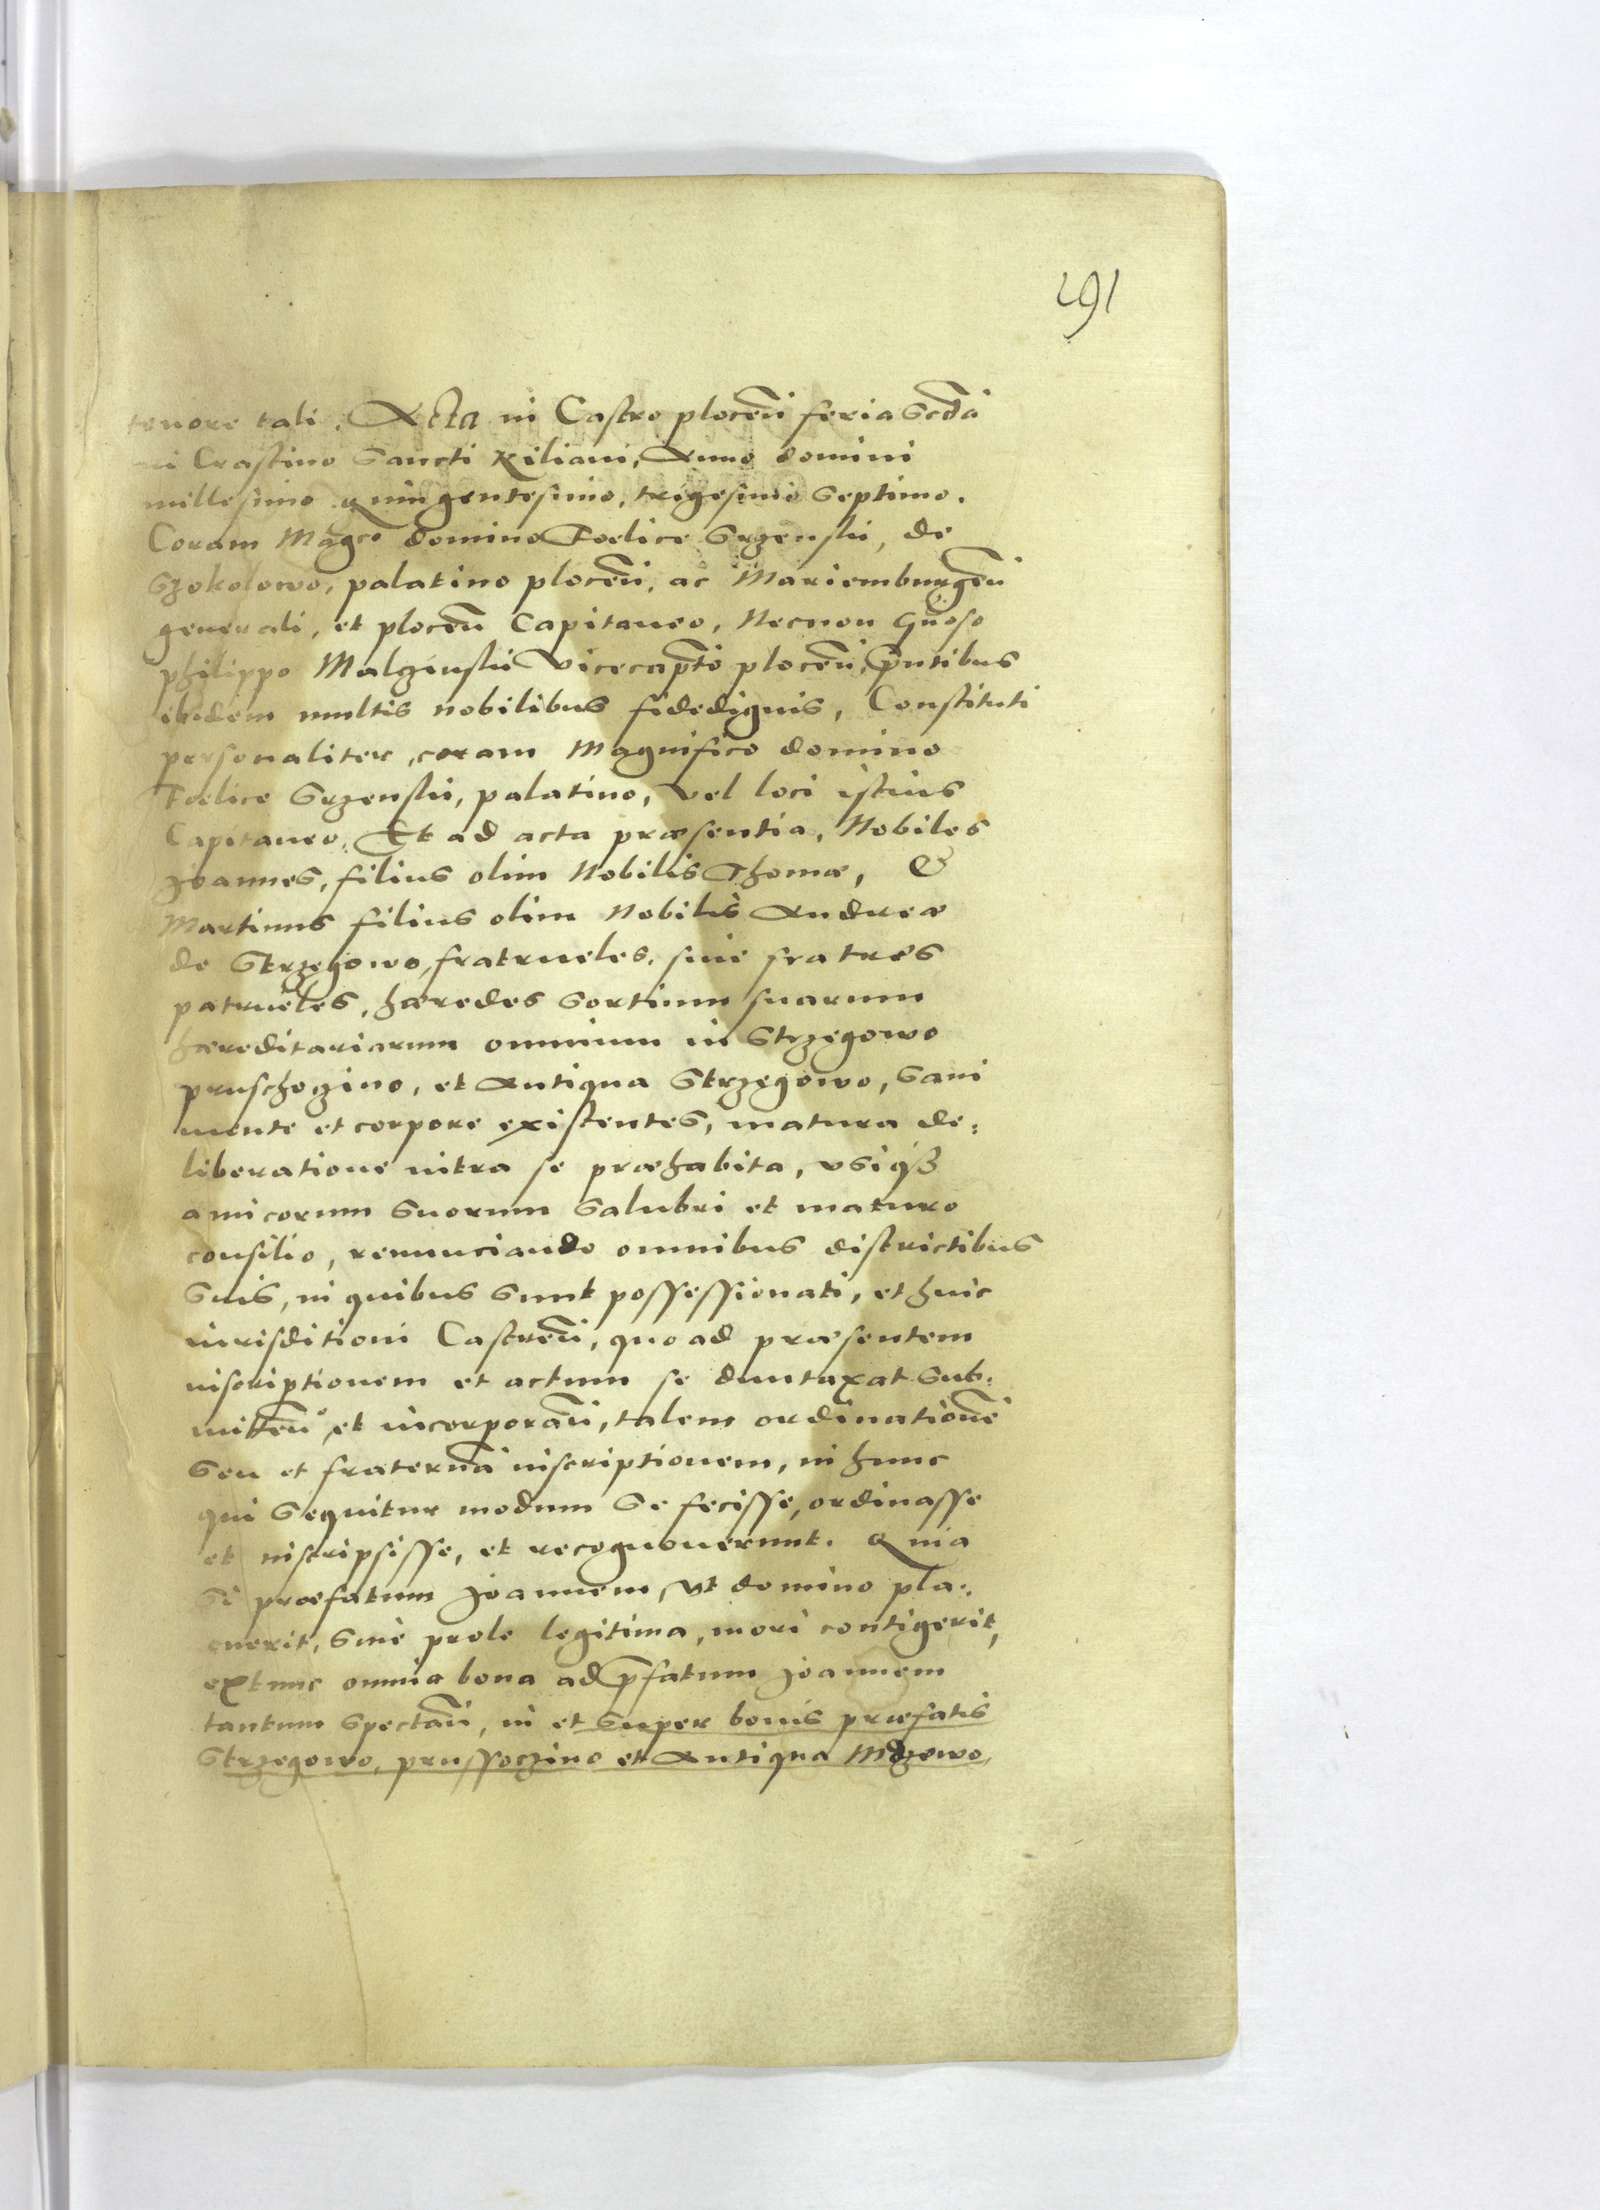 191
tenore tali. Acta in Castro plocen̄ feria Scd̄a
in Crastino Sancti Kiliani, Anno domini
millesimo quingentesimo, trigesimo Septimo.
Coram Magco domino Foelice Srzenski, de
Szokolowo, palatino plocen̄, ac Mariemburgen̄
generali, et plocen̄ Capitaneo, Necnon Gn̄oso
philippo Malzinski Vicecapt̄o plocen̄, pn̄tibus
ibidem multis nobilibus fidedignis, Constituti
personaliter, coram Magnifico domino
Foelice Srzenski, palatino, vel loci istius
Capitaneo, Et ad acta præsentia, Nobiles
Joannes, filius olim Nobilis Thomæ, &
Martinus filius olim Nobilis Andreæ
de Strzegowo, fratrueles, siue fratres
patrueles, hæredes Sortium suarum
hæreditariarum omnium in Strzegowo
pruschozino, et Antiqua Strzegowo, Sani
mente et corpore existentes, matura de:
liberatione intra se præhabita, vsiqȝ
amicorum Suorum Salubri et maturo
consilio, renunciando omnibus districtibus
Suis, in quibus Sunt possessionati, et huic
iurisditioni Castren̄, quo ad præsentem
inscriptionem et actum se duntaxat Sub:
mitten̄, et incorporan̄, talem ordinationē
Seu et fraternā inscriptionem, in hunc
qui Sequitur modum Se fecisse, ordinasse
et inscripsisse, et recognouerunt. Quia
Si præfatum Joannem, Vt domino pla:
cuerit, Sine prole legitima, mori contigerit,
extunc omnia bona ad p̄fatum Joannem
tantum Spectan̄, in et Super bonis præfatis
Strzegowo, prussoczino et Antiqua Mdzewo,